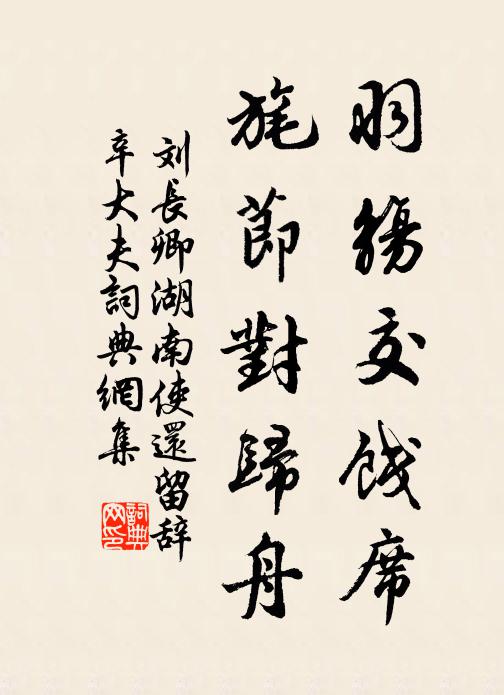 羽觴交餞席
旄節對歸舟
刘長卿湖南使還留辞
辛大夫詞典網集
詞典
网印